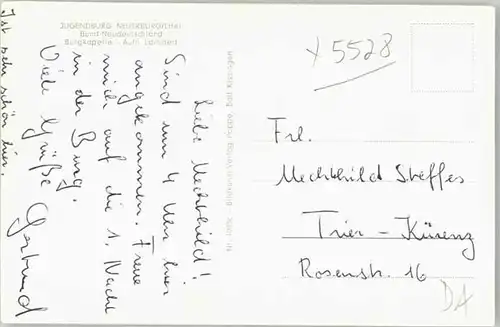 JUGENDBURG NEUERBURG/Eifel
Bund-Neudeutschland
Burgkapelle - Aufn. Lambert
x 5528
Liebe Mechthild!
Sind um 4 Uhr hier
angekommen. Freue
mich auf die 1. Nacht
in der Burg.
Viele Grüße
Gertrud
Ist sehr schön hier.
Frl.
Mechthild Steffes
Trier - Kürenz
Rosenstr. 16
DA